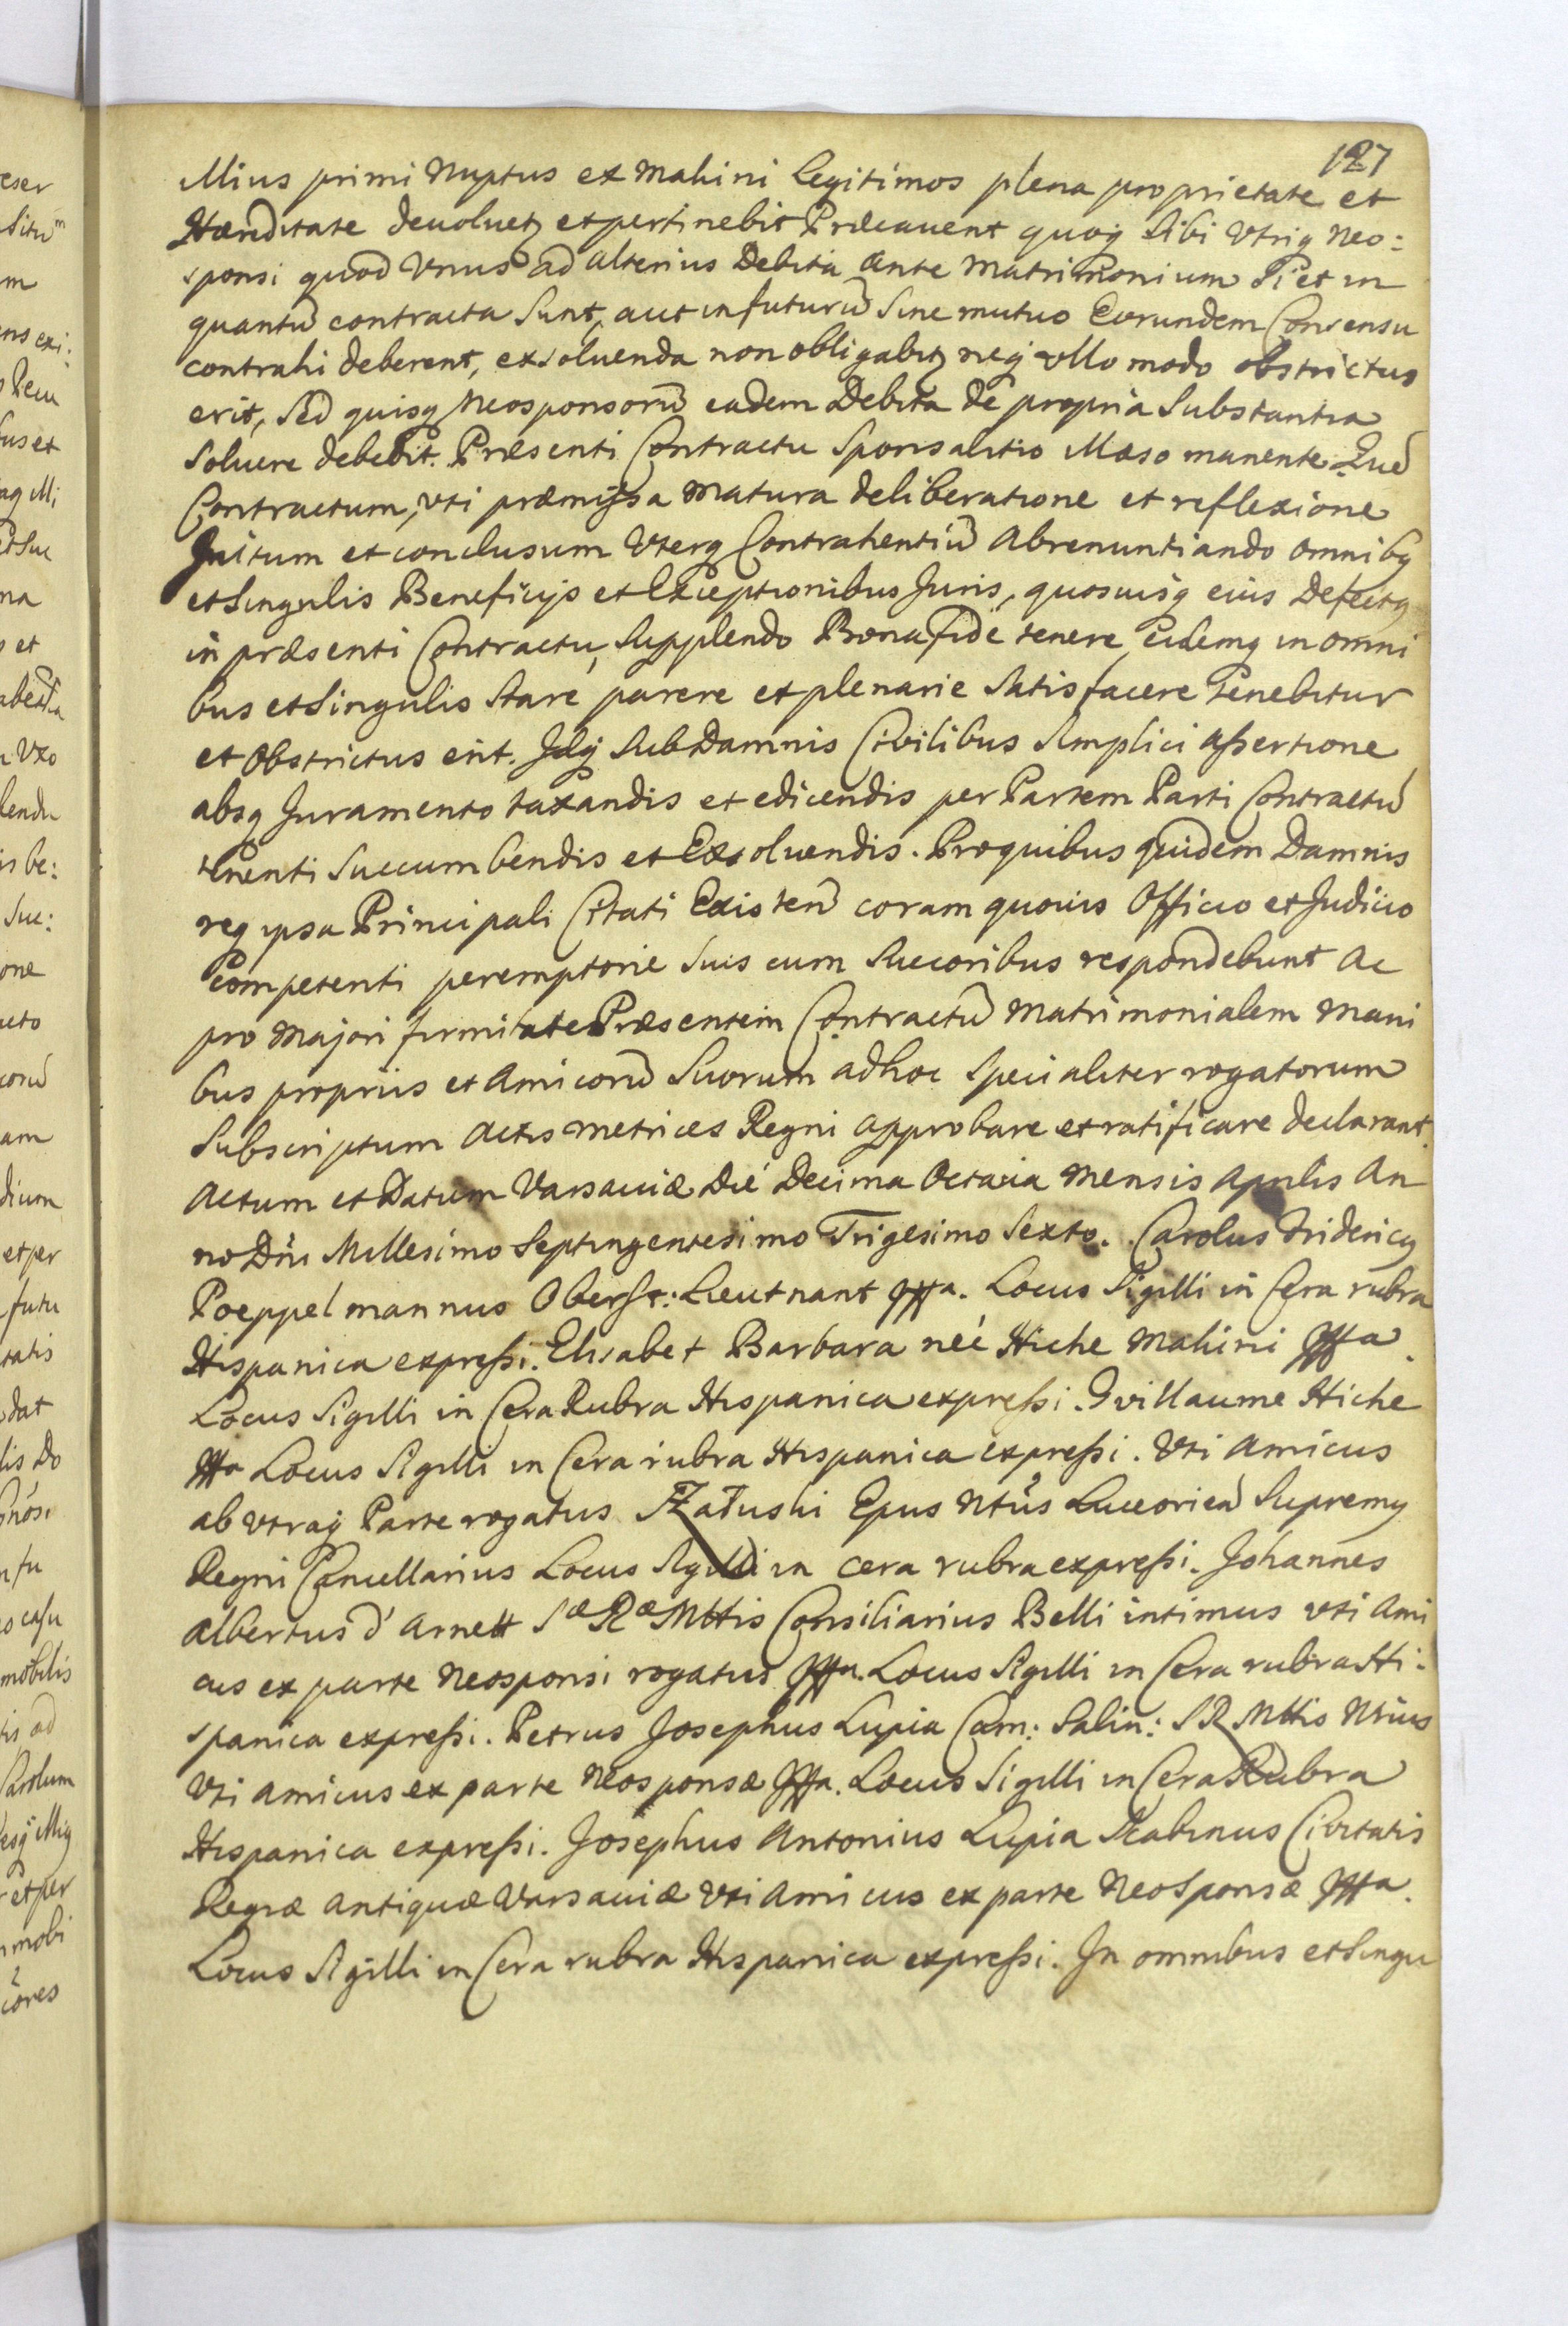 127
illius primi Nuptus ex Mahini Legitimos plena proprietate et
Hæreditate deuoluetꝫ et pertinebit Præcauent quoqꝫ Sibi Vtriqꝫ Neo:
sponsi quod Vnus ad alterius Debita ante Matrimonium Si et in
quantũ contracta Sunt, aut in futurũ Sine mutuo Eorundem Consensu
contrahi deberent, exsoluenda non obligabitꝫ neqꝫ vllo modo obstrictus
erit, Sed quisqꝫ Neosponsorũ eadem Debita de propria Substantia
Soluere debebit. Præsenti Contractu Sponsalitio illæso manente. Quẽ
Contractum, vti præmissa Matura deliberatione et reflexione
Initum et conclusum Vterqꝫ Contrahentiũ Abrenuntiando omnibꝫ
et Singulis Beneficijs et Exceptionibus Juris, quosuisqꝫ eius Defectꝫ
in præsenti Contractu, Supplendo Bona fide tenere, eidemqꝫ in omni
bus et Singulis Stare parere et plenarie Satisfacere Tenebitur
et Obstrictus erit. Idqꝫ Sub Damnis Civilibus Simplici assertione
absqꝫ Juramento taxandis et edicendis per Partem Parti Contractũ
tenenti Succumbendis et Exsoluendis. Pro quibus quidem Damnis
reqꝫ ipsa Principali Citati Existeñ coram quouis Officio et Judicio
Competenti peremptorie Suis cum Succoribus respondebunt Ac
pro Majori firmitate Præsentem Contractũ Matrimonialem Mani
bus proprijs et Amicorũ Suorum ad hoc Specialiter rogatorum
Subscriptum Actis Metrices Regni approbare et ratificare declarant.
Actum et Datum Varsauiæ Die Decima Octaua Mensis Aprilis An
no Dñi Millesimo Septingentesimo Trigesimo Sexto. Carolus Fridericꝫ
Poeppelmannus Oberst: Lieutnant Mppa. Locus Sigilli in Cera rubra
Hispanica expressi. Elisabet Barbara neé Hiche Mahini Mppa.
Locus Sigilli in Cera Rubra Hispanica expressi. Gvillaume Hiche
Mppa Locus Sigilli in Cera rubra Hispanica expressi. Vti Amicus
ab vtraqꝫ Parte rogatus Załuski Epus Ntũs Luceorieñ Supremꝫ
Regni Cancellarius Locus Sigilli in cera rubra expressi. Johannes
Albertus d' Arnett Sæ Ræ Mttis Consiliarius Belli intimus vti Ami
cus ex parte Neosponsi rogatus Mppa. Locus Sigilli in Cera rubra Hi:
spanica expressi. Petrus Josephus Lupia Cam: Salin: SR Mttis Ntrius
Vti amicus ex parte Neosponsæ Mppa. Locus Sigilli in Cera Rubra
Hispanica expressi. Josephus Antonius Lupia Scabinus Civitatis
Regiæ Antiquæ Varsauiæ Vti Amicus ex parte Neosponsæ Mppa.
Locus Sigilli in Cera rubra Hispanica expressi. In omnibus et Singu